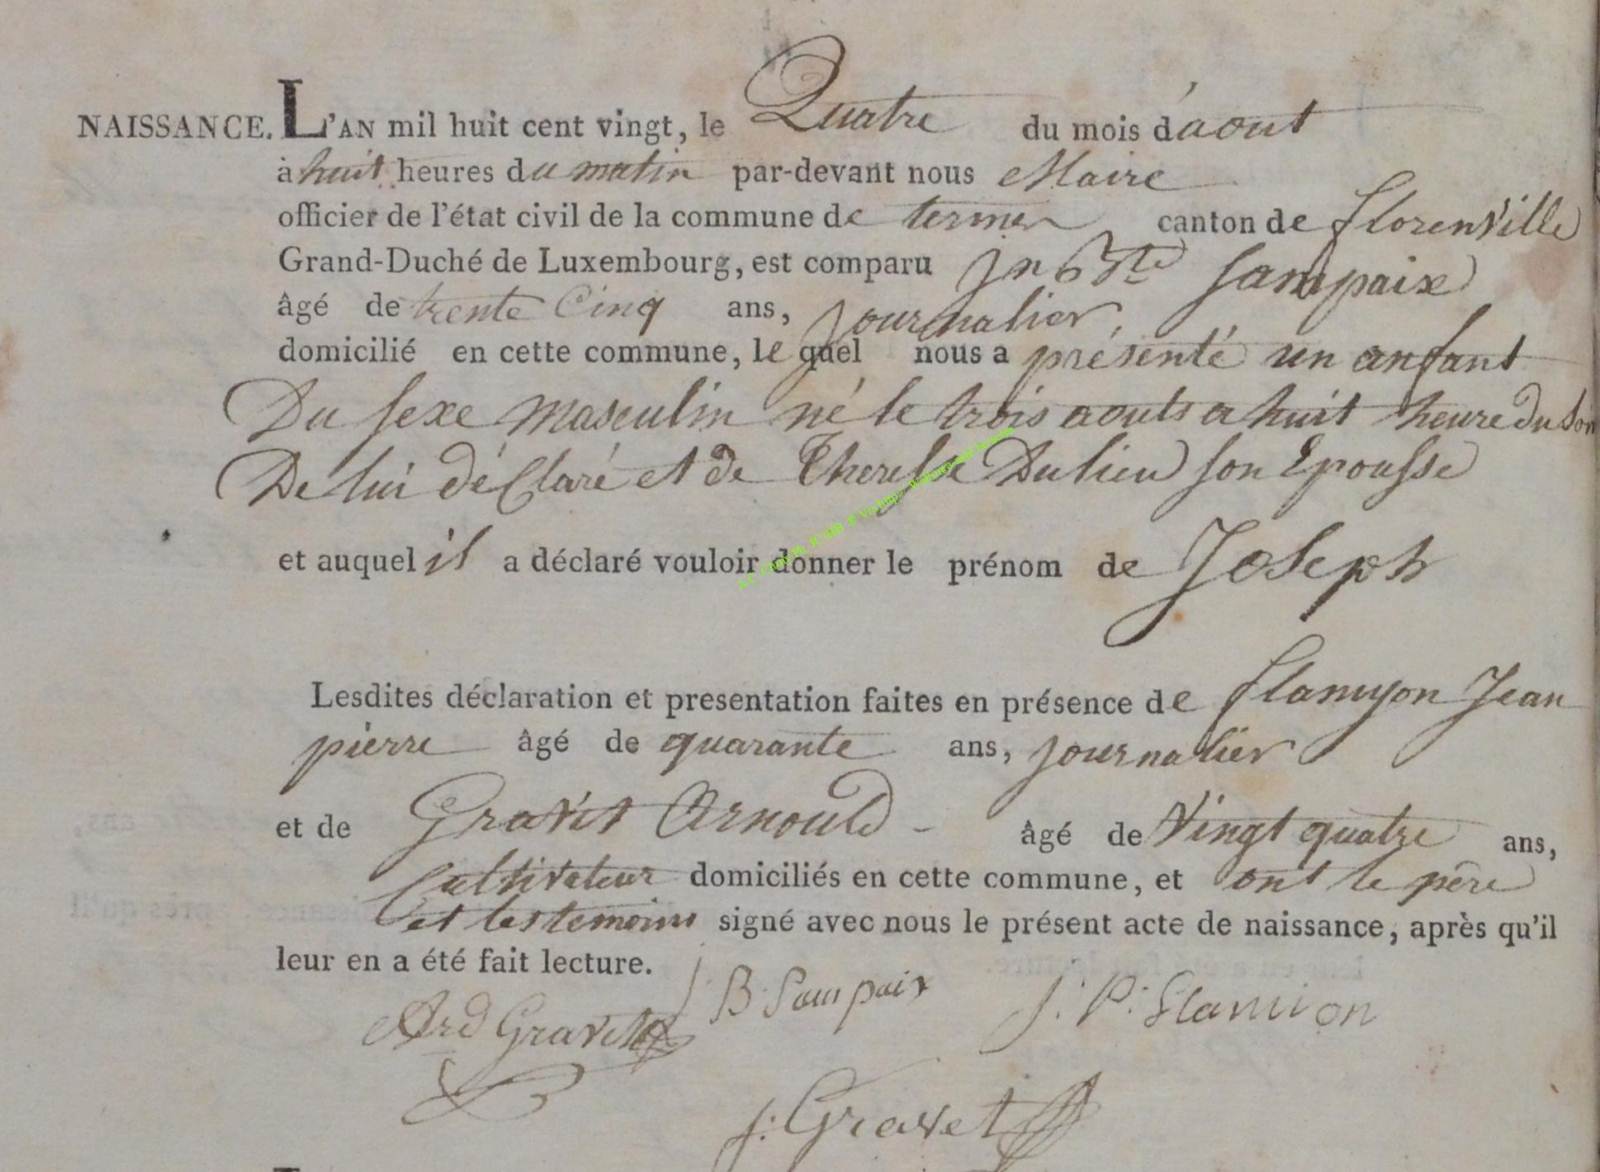 NAISSANCE. L'AN mil huit cent vingt, le Quatre du mois d'aout
à huit heures du matin par-devant nous Maire
officier de l'état civil de la commune de termes canton de florenville
Grand-Duché de Luxembourg, est comparu Jn Bste Sampaix
âgé de trente Cinq ans, journalier,
domicilié en cette commune, le quel nous a présenté un anfant
Du sexe masculin né le trois aouts a huit heure du soir
De lui déClaré et de Theresse Dulieu son Epousse
et auquel il a déclaré vouloir donner le prénom de Joseph
Lesdites déclaration et presentation faites en présence de flamyon Jean
pierre âgé de quarante ans, journalier
et de Gravet Arnould - âgé de Vingt quatre ans,
Cultivateur domiciliés en cette commune, et ont le père
et les temoins signé avec nous le présent acte de naissance, après qu'il
leur en a été fait lecture.
J: B: Sampaix J: P: flamion
Ard Gravet
J: Gravet